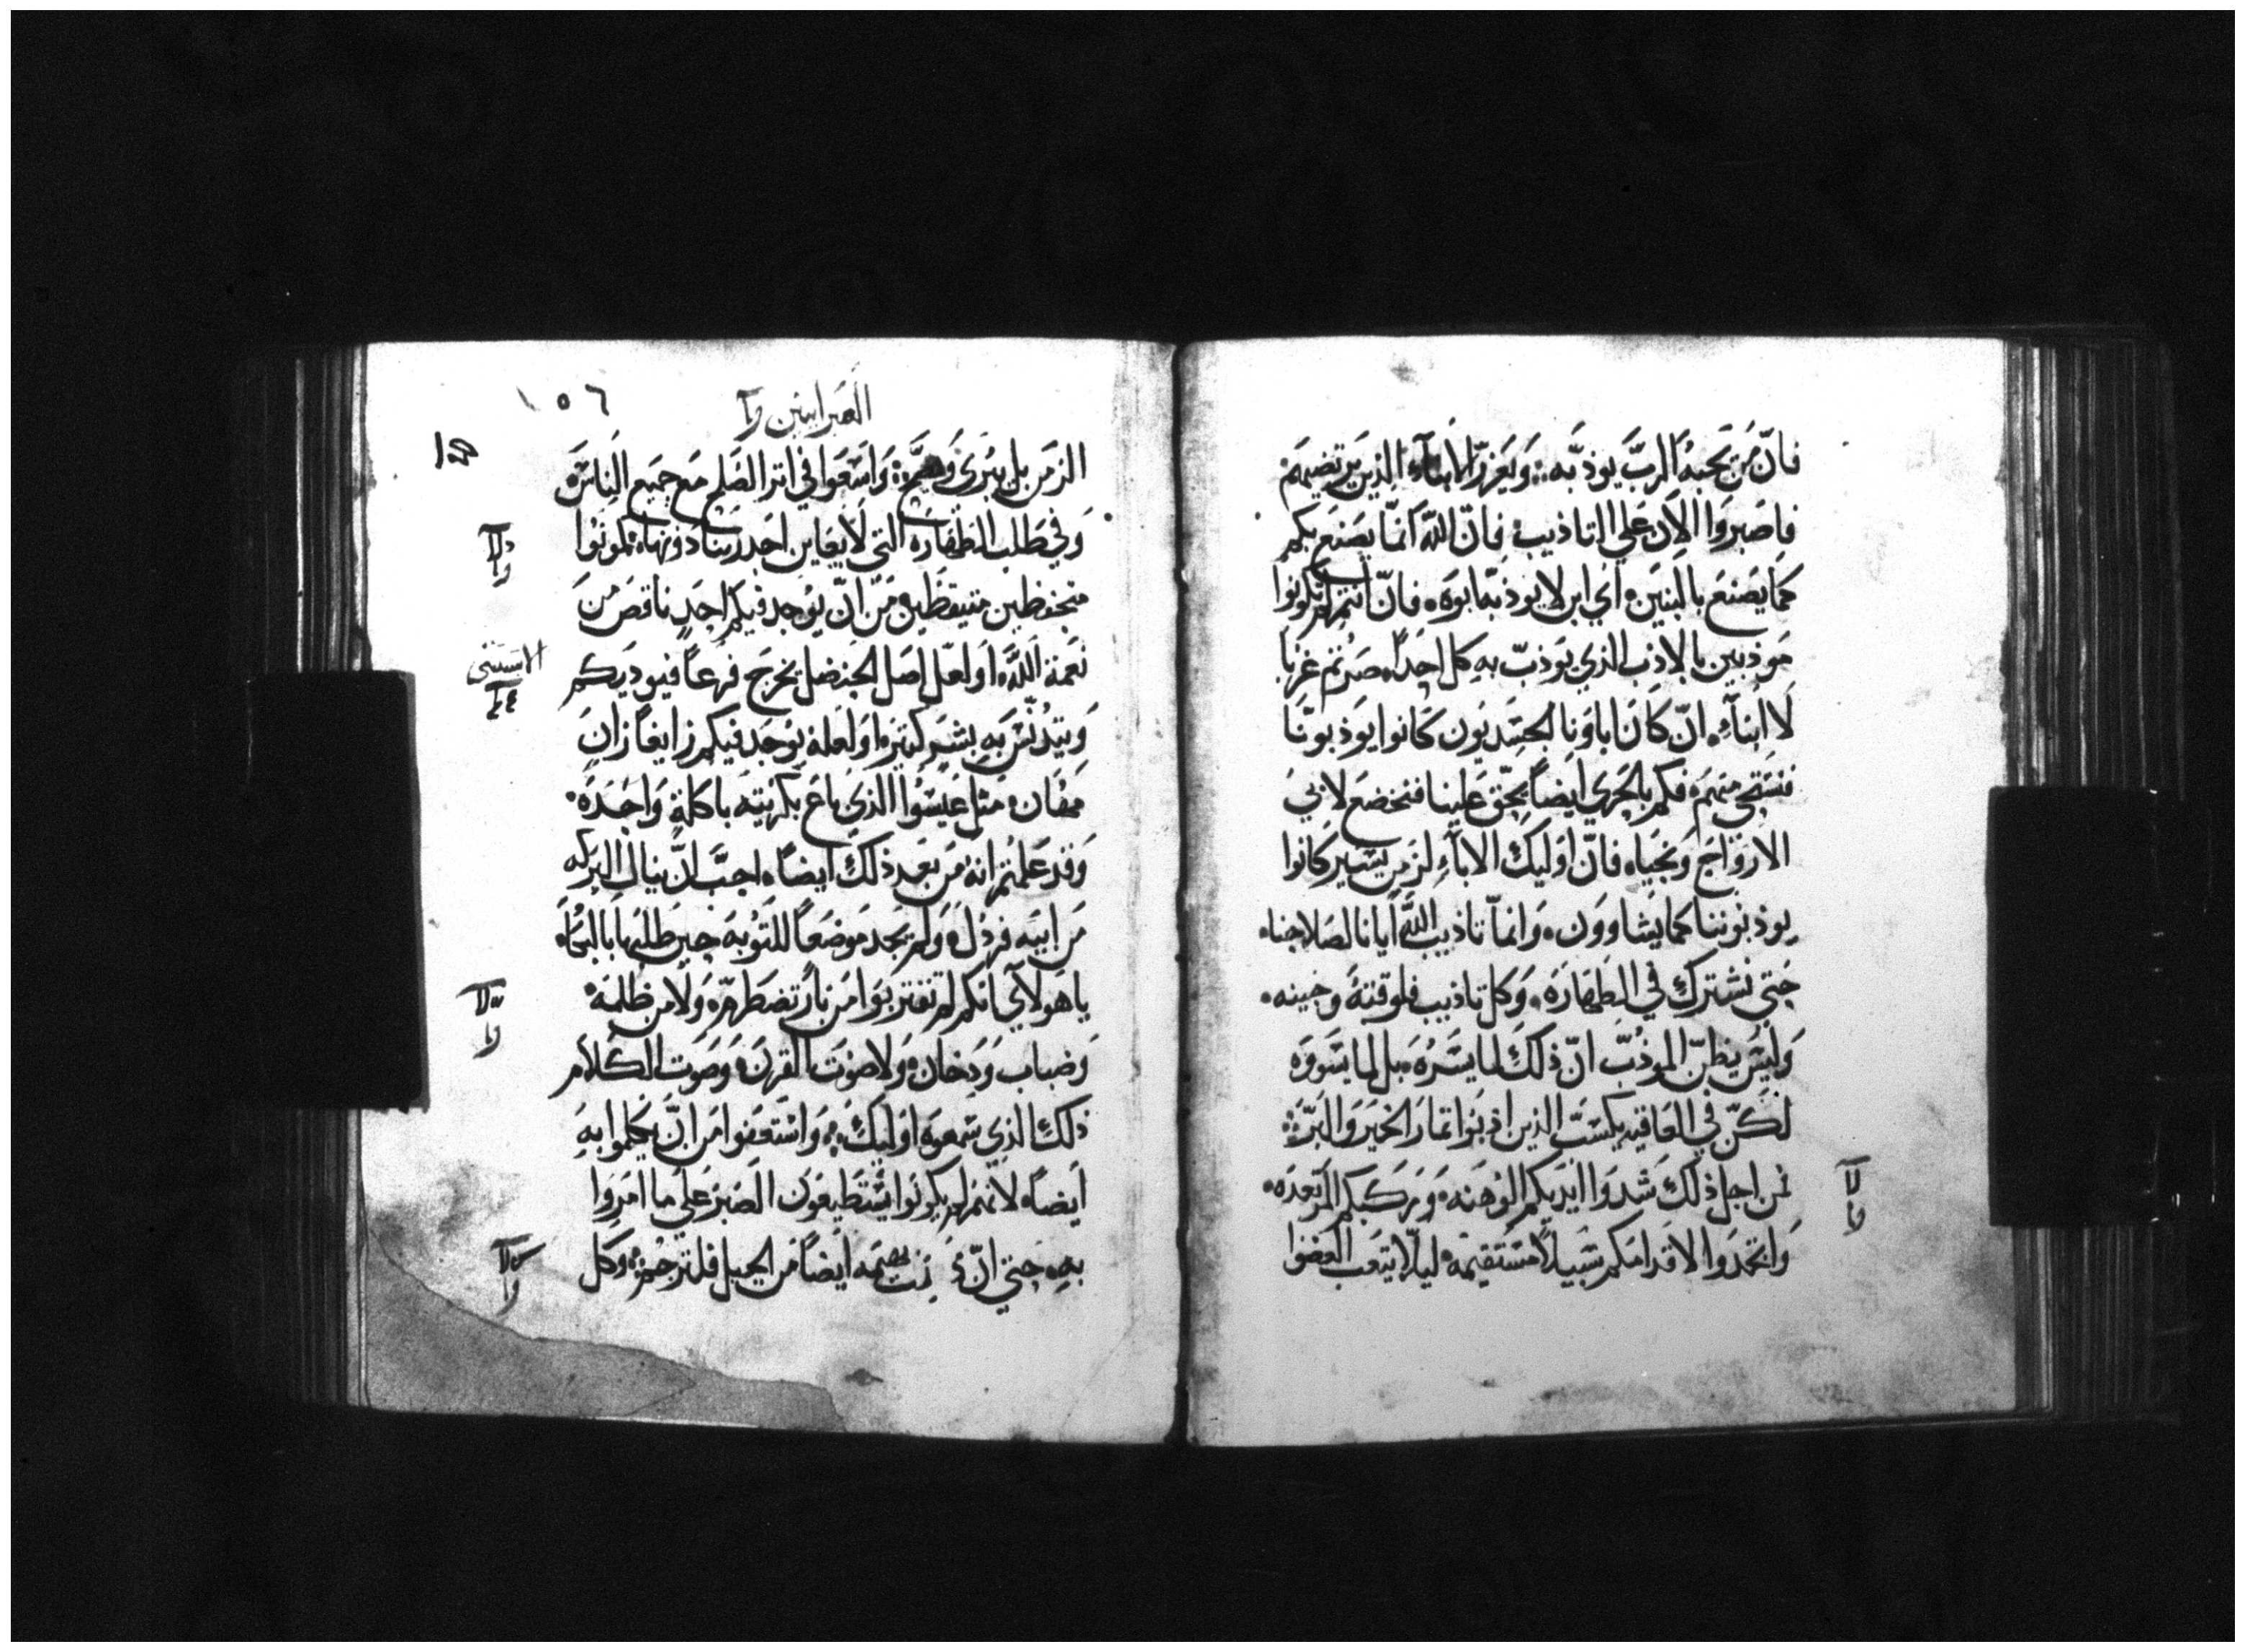 فانّ من يحبه الربّ يوذبه ويعزز الابناء الذين يرتضيهم
فاصبروا الان علي التاذيب فانّ الله انما يصنع بكم
كما يصنع بالبنين اي ابن لا يوذبه ابوه فانّ انتم لم تكونوا
موذبين بالاذب الذي يوذبّ به كل احداً صرتم غربا
لا ابناء انّ كان اباونا الجسديون كانوا يوذبونا
فنستحي منهم فكم بالحري ايضاً يحقّ علينا فنخضع لابي
الارواح ونحيا فانّ اوليك الاباء لزمن يسير كانوا
يوذبوننا كما يشاوون وانما تاذيب الله ايانا لصلاحنا
حتي نشترك في الطهاره وكل تاذيب فلوقته وحينه
وليس يظنّ الموذبّ انّ ذلك لما يسره بل لما يسووه
لكنّ في العاقبه يكسبّ الذين اذبوا ثمار الخير والبرّ
فمن اجل ذلك شدوا ايديكم الوهنه وركبكم المرتعده
واتخدوا لاقدامكم سبيلاً مستقيمه ليلا يتعب العضوا
١٥٦
العبرانيين
الزمن بل يبري واسعوا في اثر الصلح مع جميع الناس
وفي طلب الطهاره التي لا يعاين احد ربنا دونها تكونوا
متحفظين متيقظين من انّ يوجد فيكم احد ناقص من
نعمة الله او لعل اصل الحنضل يخرج فرعاً فيوديكم
ويتدنس به بشر كتير او لعله يوجد فيكم زايغاً زان
مهان مثل عيسوا الذي باع بكريته باكلة واحده
وقد علمتم انه من بعد ذلك ايضاً احبّ انّ ينال البركه
من ابيه فرذل ولم يجد موضعاً للتوبه حين طلبها بالبكا
يا هولاي انكم لم تقتربوا من نار تضطرم ولا من ظلمه
وضباب ودخان ولا صوت القرن وصوت الكلام
ذلك الذي سمعوه اوليك واستعفوا من انّ يكلموا به
ايضاً لانهم لم يكونوا يستطيعون الصبر علي ما امروا
به حتي انّ بهيمه ايضاً من الجبل فلترجم وكل